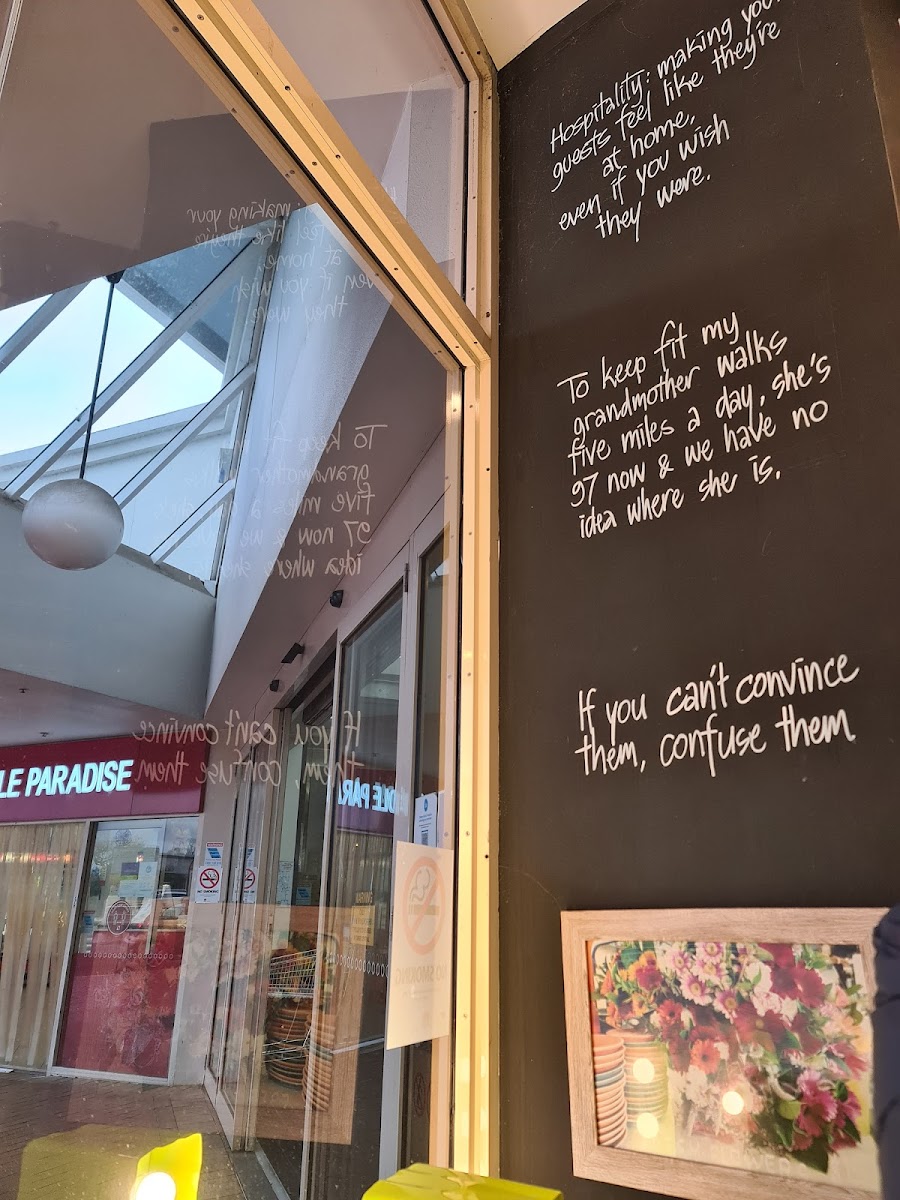 Hospitality: making your
guests feel like they're
at home,
even if you wish
they were.
To keep fit my
grandmother walks
five miles a day, she's
97 now & we have no
idea where she is.
If you can't convince
them, confuse them
LE PARADISE
NO SMOKING